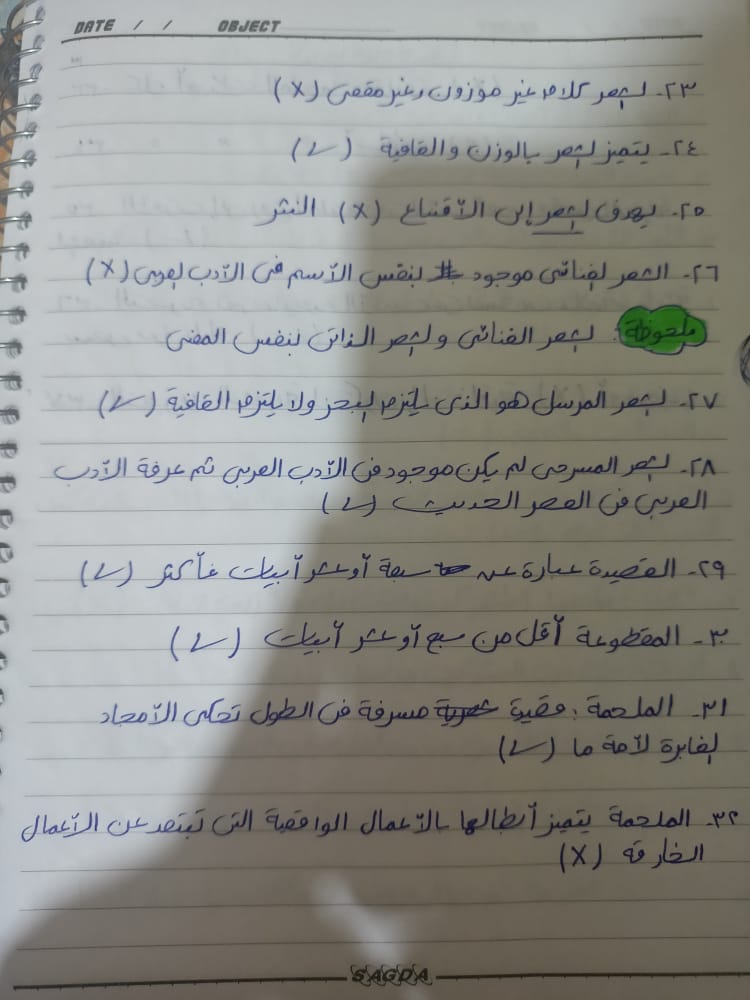 DATE / / OBJECT
٢٣- الشعر كلام غير موزون وغير مقفى (X)
٢٤- يتميز الشعر بالوزن والقافية (✓)
٢٥- يهدف الشعر إلى الأقناع (X) النثر
٢٦- الشعر الغنائى موجود بنفس الأسم فى الأدب العربى (X)
ملحوظة: الشعر الغنائى والشعر الذاتى بنفس المعنى
٢٧- الشعر المرسل هو الذى يلتزم البحر ولا يلتزم القافية (✓)
٢٨- الشعر المسرحى لم يكن موجود فى الأدب العربى ثم عرفة الأدب
العربى فى العصر الحديث (✓)
٢٩- القصيدة عبارة عن سبعة أو عشر أبيات فأكثر (✓)
٣٠- المقطوعة أقل من سبع أو عشر أبيات (✓)
٣١- الملحمة: قصيدة مسرفة فى الطول تحكى الأمجاد
الغابرة لأمة ما (✓)
٣٢- الملحمة يتميز أبطالها بالأعمال الواقعية التى تبتعد عن الأعمال
الخارقة (X)
SAGDA